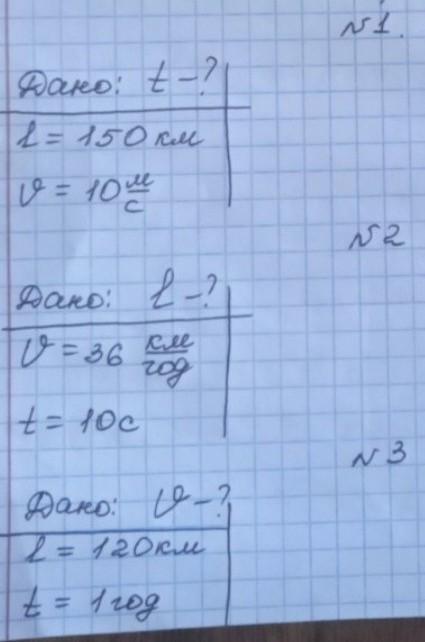 №1.
Дано: t-?
l = 150 км
υ = 10 м/с
№2
Дано: l-?
υ = 36 км/год
t = 10с
№3
Дано: υ-?
l = 120км
t = 1год